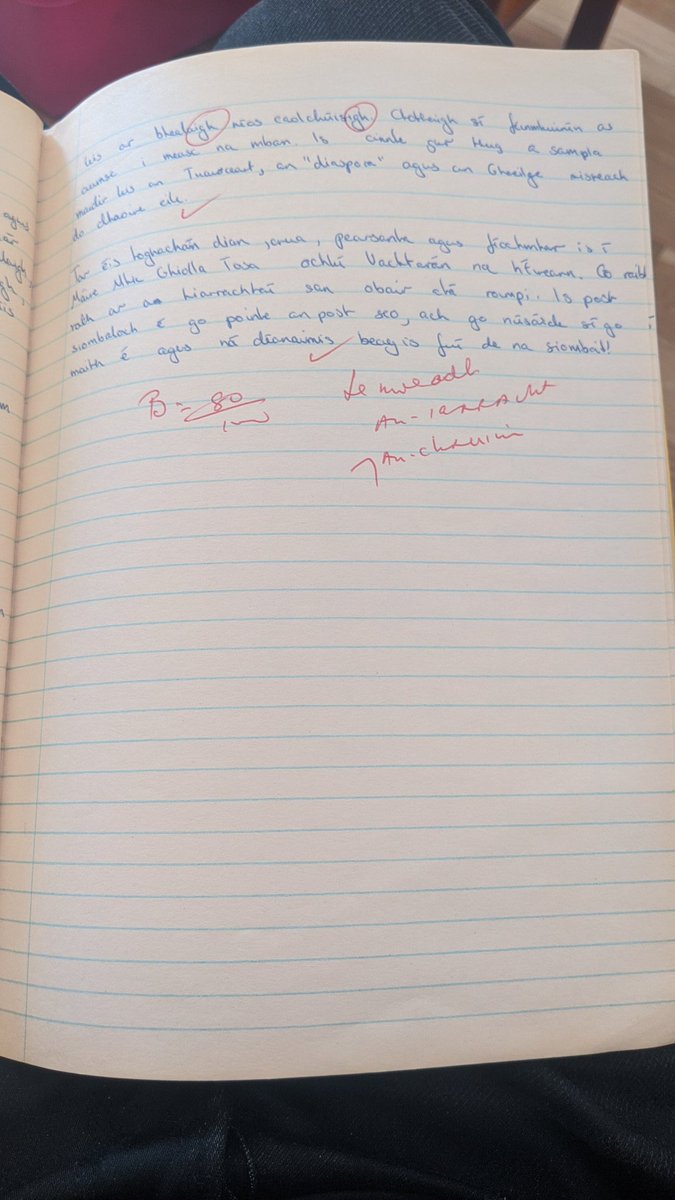 leis ar bhealaigh níos caolchúisigh. Chothaigh sí féinmhuinín as
cuimse i measc na mban. Is cinnte gur thug a sampla
maidir leis an Tuaisceart, an "diaspora" agus an Ghaeilge misneach
do dhaoine eile.
Tar éis toghachán dian, crua, pearsanta agus fíochmhar is í
Máire Mhic Ghiolla Íosa ochtú Uachtarán na hÉireann. Go raibh
rath ar an hiarrachtaí san obair atá roimpi. Is post
siombalach é go pointe an post seo, ach go núsáide sí go
maith é agus ná déanaimis beag is fiú de na siombail!
B = 80
100
Le míreadh
An-iarracht
An-chruinn
agus
ár